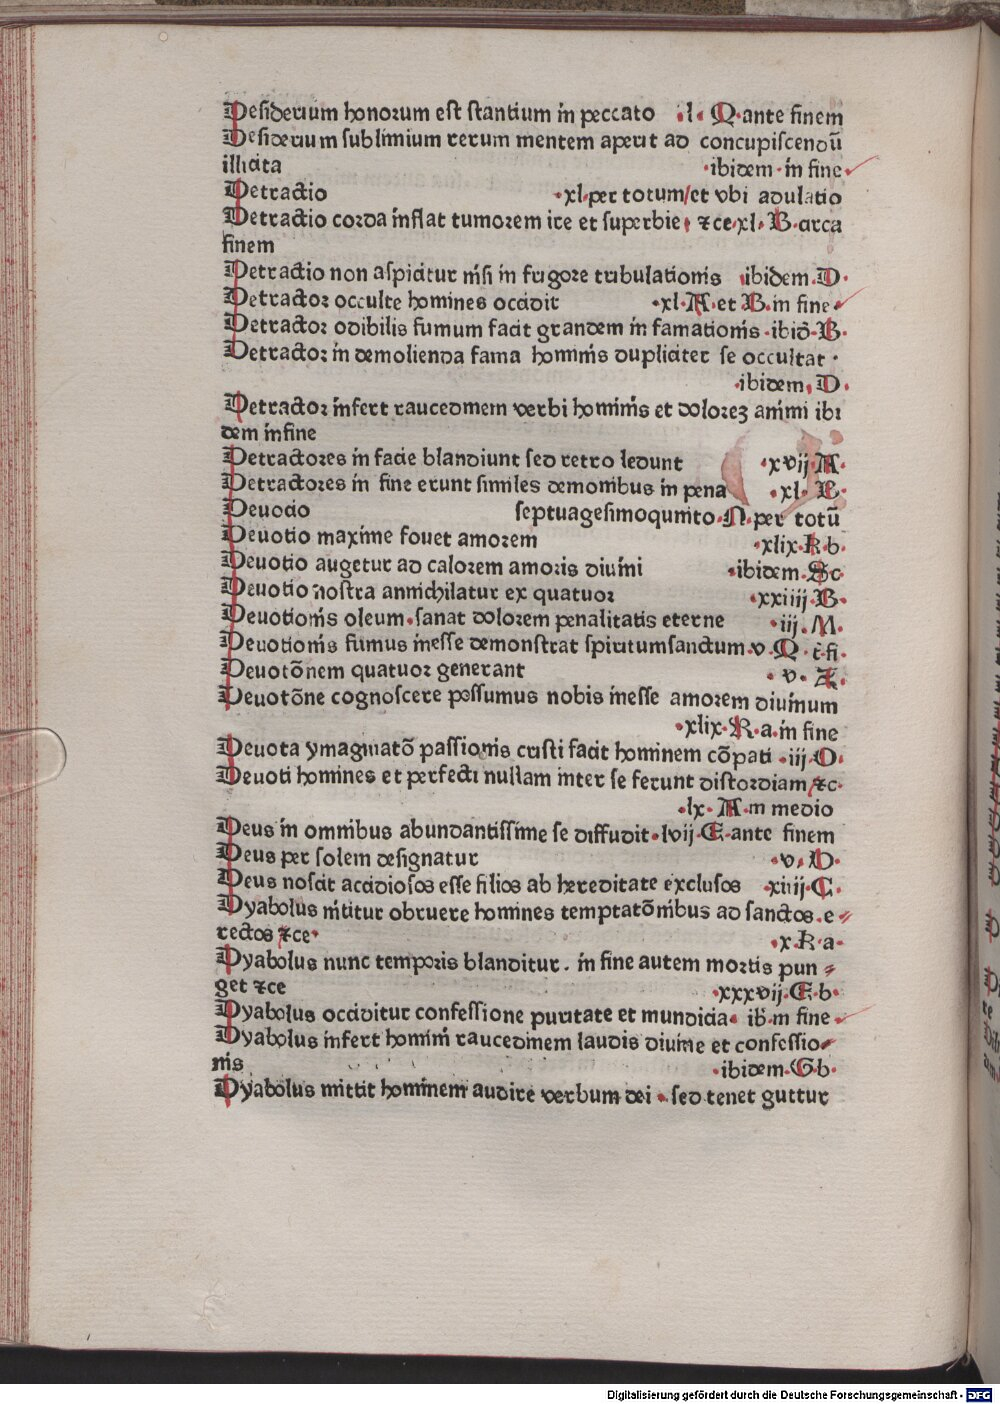 Desiderium honorum est stantium in peccato ·l· Q·ante finem
Desiderium sublimium rerum mentem aperit ad concupiscendū
illicita ·ibidem·in fine
Detractio ·xl·per totum/et vbi adulatio
Detractio corda inflat tumorem ire et superbie· ⁊ce·xl·B·circa
finem
Detractio non aspicitur nisi in frigore tribulationis ibidem·D·
Detractor occulte homines occidit ·xl·A·et B·in fine·
Detractor odibilis fumum facit grandem in famationis·ibid̄·B·
Detractor in demolienda fama hominis dupliciter se occultat·
·ibidem·D·
Detractor infert raucedinem verbi hominis et doloreꝫ animi ibi
dem infine
Detractores in facie blandiunt sed retro ledunt ·xvij·A·
Detractores in fine erunt similes demonibus in pena ·xl·B·
Deuocio septuagesimoquinto·N·per totū
Deuotio maxime fouet amorem ·xlix·R·b·
Deuotio augetur ad calorem amoris diuini ·ibidem·S·c·
Deuotio nostra annichilatur ex quatuor ·xxiiij·B·
Deuotionis oleum·sanat dolorem penalitatis eterne ·iij·M·
Deuotionis fumus inesse demonstrat spiritumsanctum·v·Q·ī·fi·
Deuotōnem quatuor generant ·v·A·
Deuotōne cognoscere possumus nobis inesse amorem diuinum
·xlix·R·a·in fine
Deuota ymaginatō passionis cristi facit hominem cōpati ·iij·O·
Deuoti homines et perfecti nullam inter se ferunt distordiam ⁊c·
·lx·A·in medio
Deus in omnibus abundantissime se diffudit·lvij·E·ante finem
Deus per solem designatur ·v·D·
Deus noscit accidiosos esse filios ab hereditate exclusos xiiij·C·
Dyabolus nititur obruere homines temptatōnibus ad sanctos·e⸗
rectos ⁊ce· ·x·R·a·
Dyabolus nunc temporis blanditur· in fine autem mortis pun⸗
get ⁊ce ·xxxvij·E·b·
Dyabolus occiditur confessione puritate et mundicia· ib·in fine·
Dyabolus infert homini raucedinem laudis diuine et confessio⸗
nis ·ibidem·G·b·
Dyabolus mittit hominem audire verbum dei · sed tenet guttur
Digitalisierung gefördert durch die Deutsche Forschungsgemeinschaft - DFG